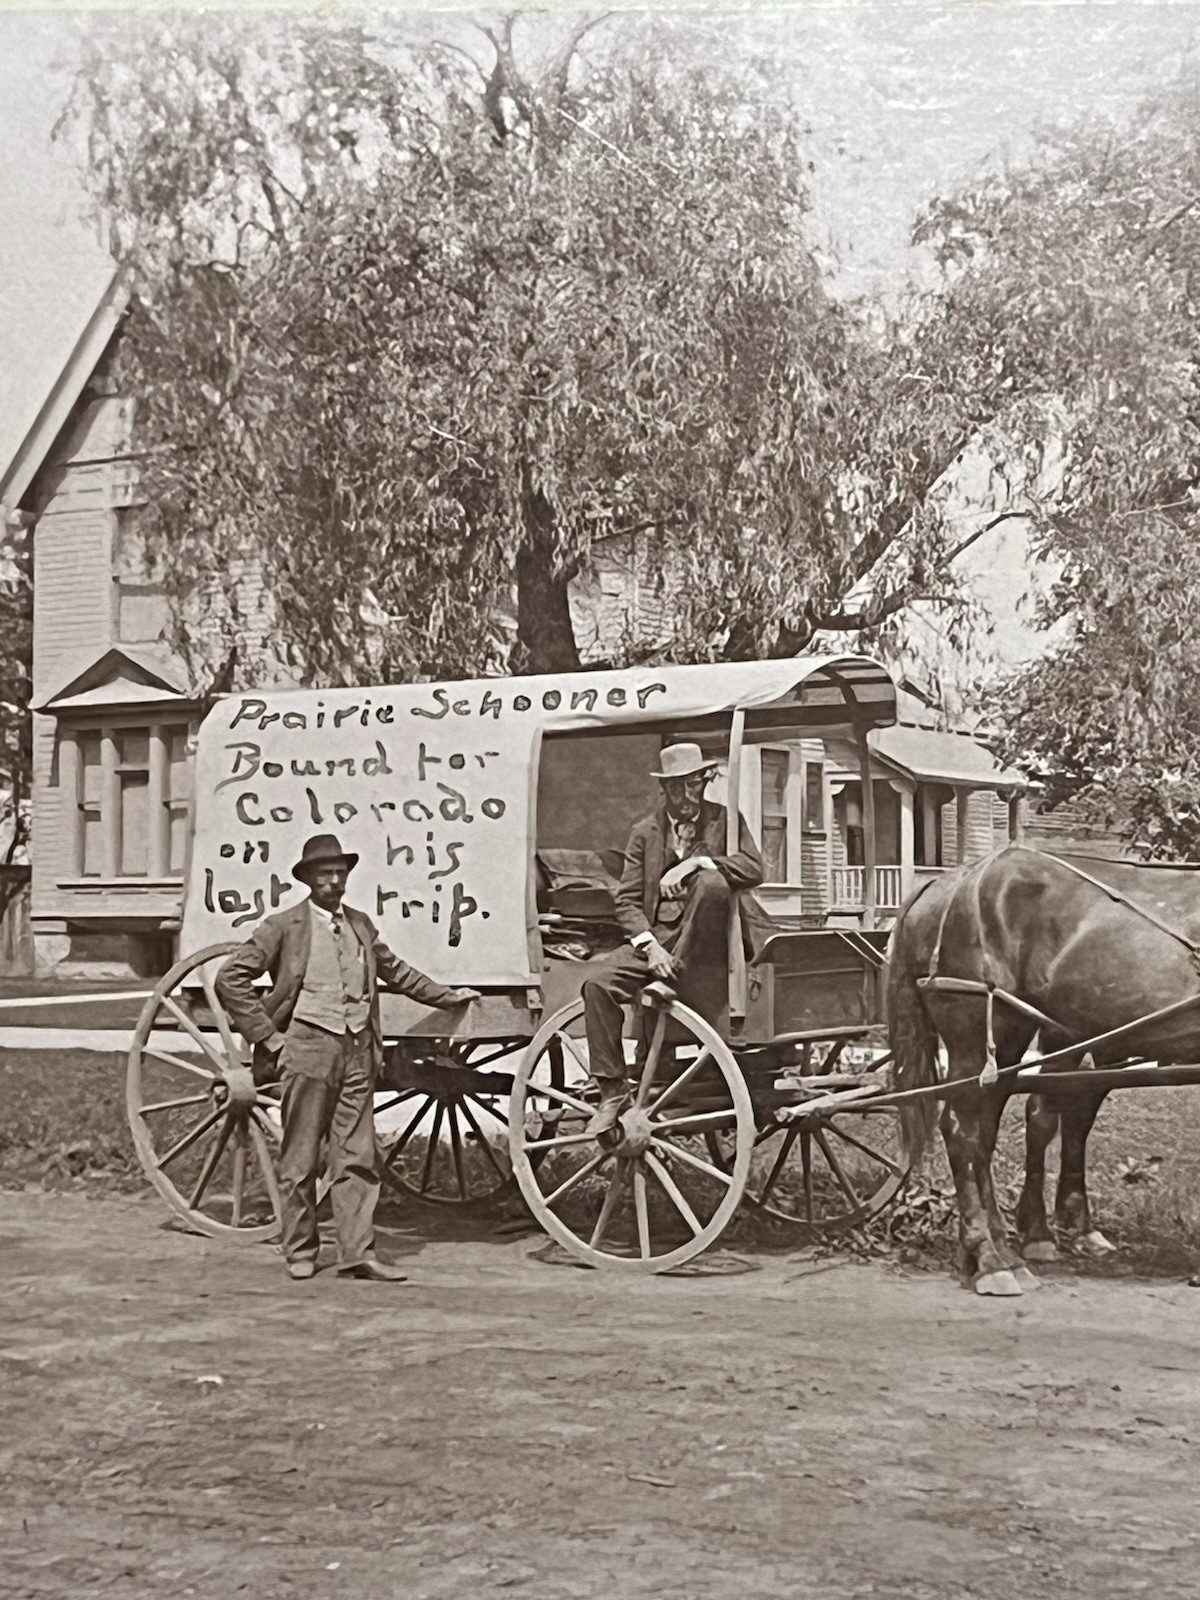 Prairie Schooner
Bound for
Colorado
on his
last trip.